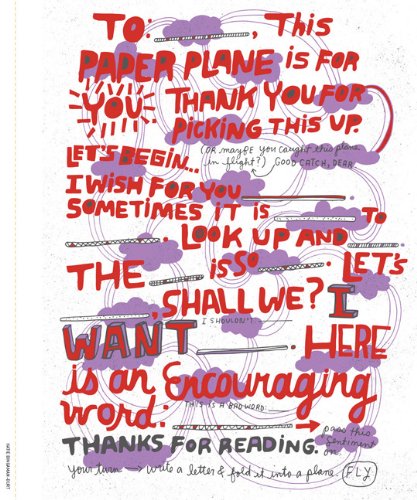 TO: ________, THIS
PAPER PLANE IS FOR
YOU THANK YOU FOR
PICKING THIS UP.
(OR MAYBE YOU CAUGHT THIS PLANE
IN FLIGHT?) GOOD CATCH, DEAR
LET'S BEGIN...
I WISH FOR YOU ________.
SOMETIMES IT IS ________ TO
________. LOOK UP AND ________.
THE ________ IS SO ________. LET'S
________, SHALL WE? I
I SHOULDN'T ________
WANT ________. HERE
is an Encouraging
word: ________
THIS IS A BAD WORD: ________
pass this
sentiment
on.
THANKS FOR READING.
Your turn → write a letter & fold it into a plane. FLY
KATE BINGAMAN-BURT